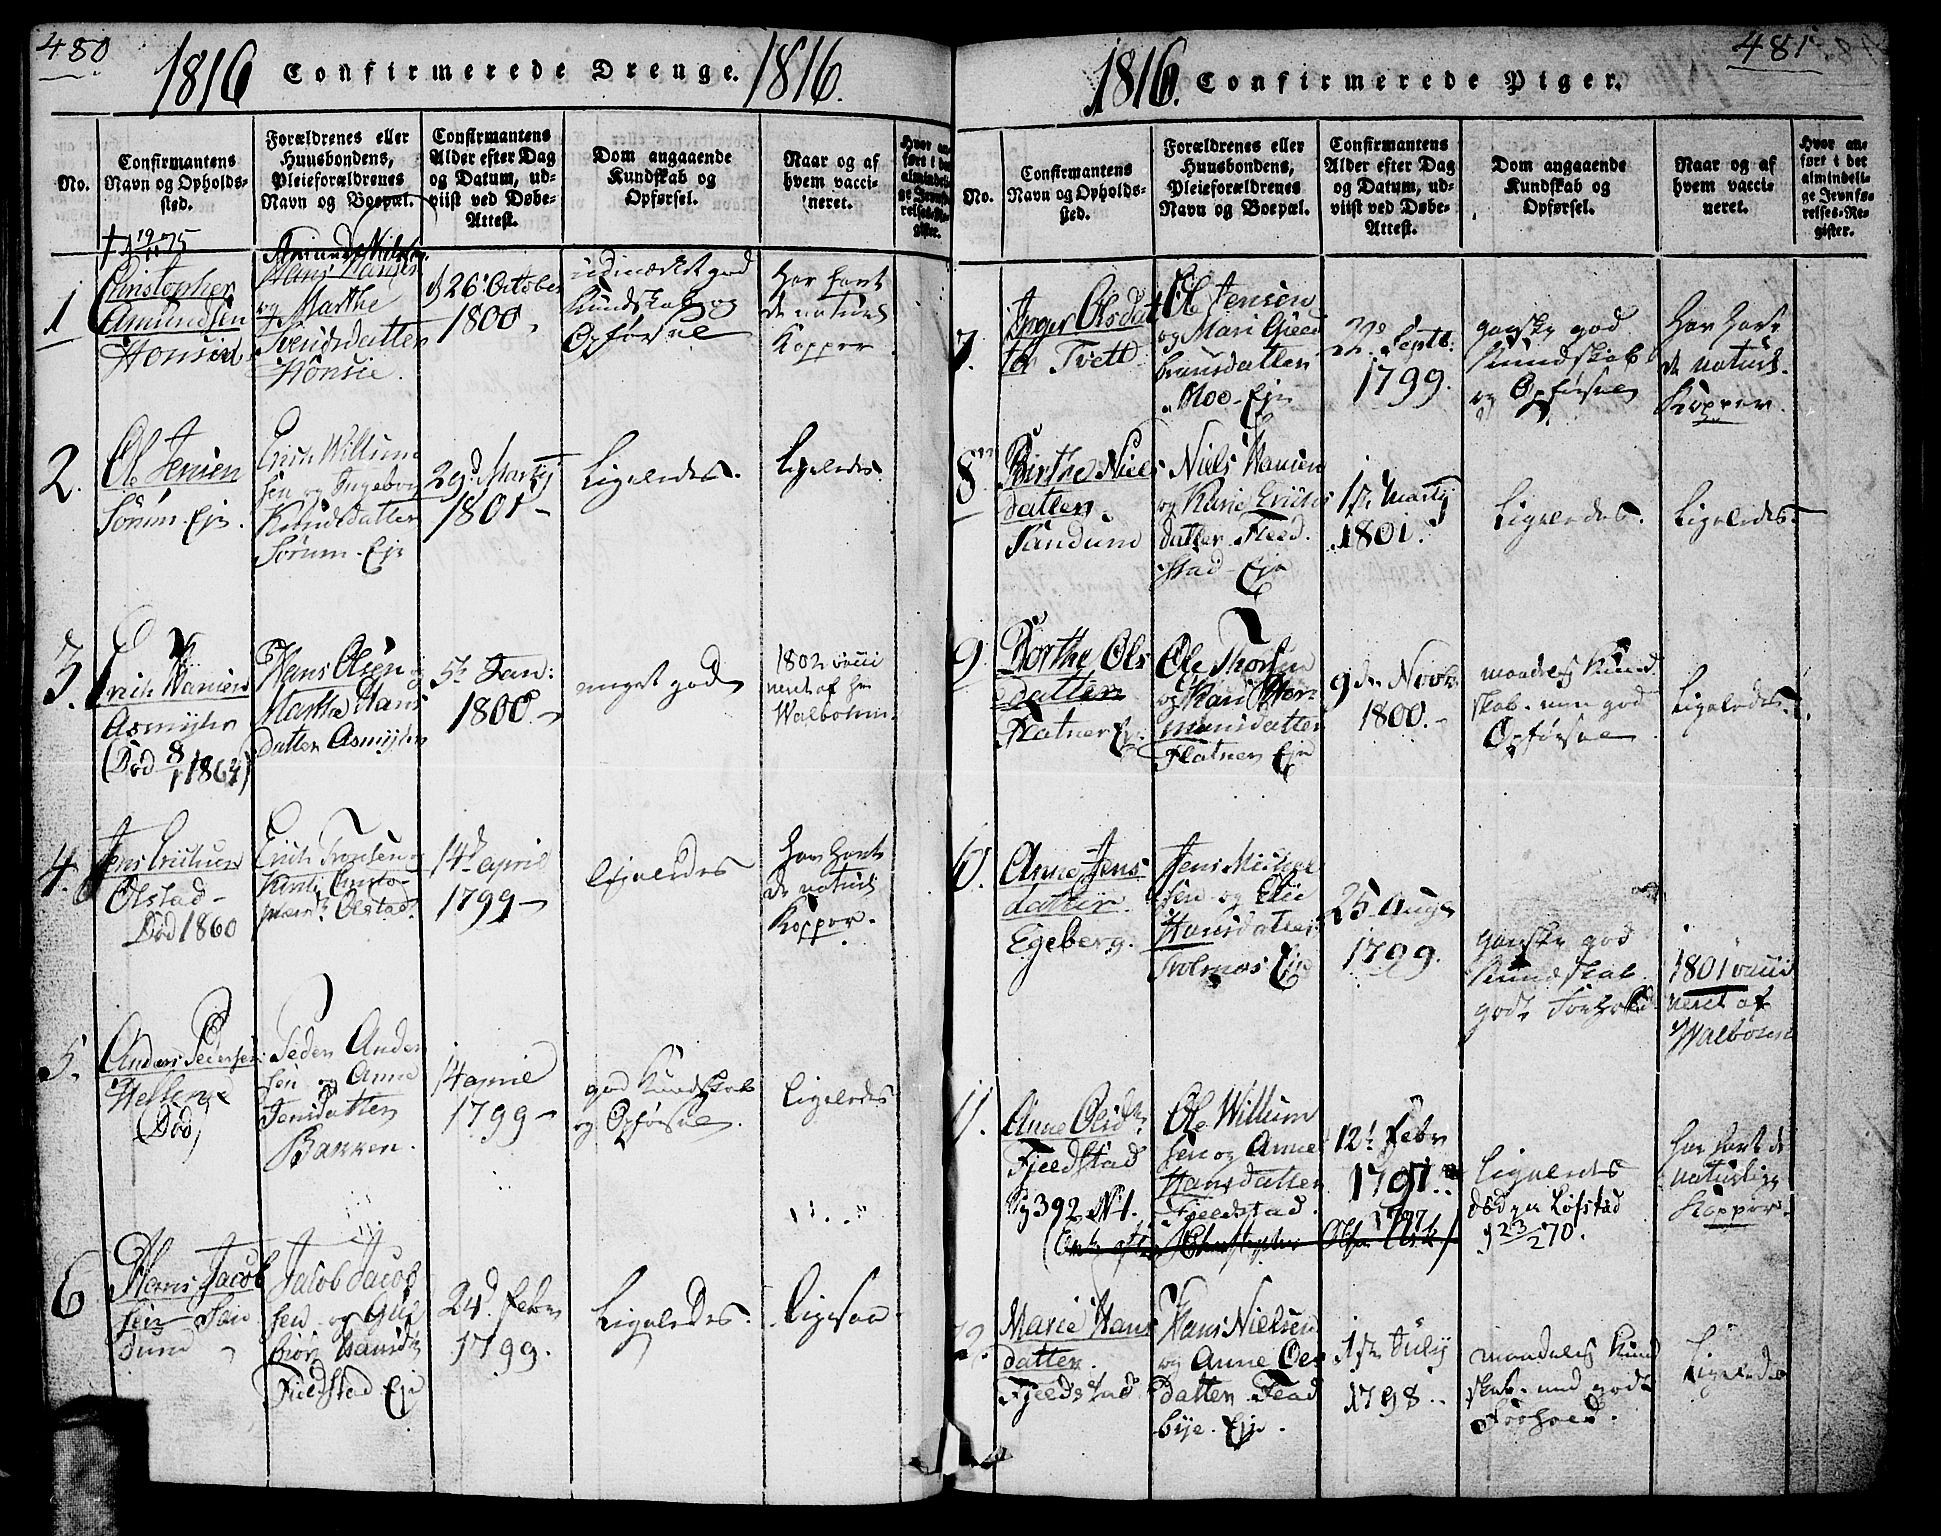 480
1816 Confirmerede Drenge. 1816.
No.
Confirmantens
Navn og Opholds-
sted.
Forældrenes eller
Huusbondens,
Pleieforældrenes
Navn og Boepæl.
Confirmantens
Alder efter Dag
og Datum, ud-
viist ved Døbe-
Attest.
Dom angaaende
Kundskab og
Opførsel.
Naar og af
hvem vacci-
neret.
Hvor an-
ført i det
almindeli-
ge Jevnfø-
relses-Re-
gister.
1
Christopher
Amundsen
Hans Hansen
og Marthe
Svendsdatter
Hönsie.
26. October
1800.
udmærket god
Kundskab og
Opførsel
har havt
de naturl.
Kopper
2.
Ole Jensen
Sörum-Eje.
Erich Willum
sen og Ingebor
Sørum-Eje
29d. Martij
1801-
Ligeledes.
Ligeledes
3.
Erich Hansen
(Död 8/1 1864)
Hans Olsen
Marthe Hans
datter
5te Jan:
1800.-
meget god
1802 vacci
neret af Hr
Walbohm.
4.
Jens Erichsen
Olstad-
Död 1860
Erich
Olstad.
14d. april
1799-
ligeledes
har havt
de naturl.
Kopper.
5.
Anders Pedersen
Död)
Peder Ander
sen og Anne
Jensdatter
Bakken.
14 april
1799-
god Kundskab
og Opførsel.
Ligeledes
6
Hans Jacob
sen San
dum
Jacob Jacob
sen og Gul
Fjeldstad Eje
24d. Febr
1799.
Ligeledes.
Ligesaa
481
1816. Confirmerede Piger.
No.
Confirmantens
Navn og Opholds-
sted.
Forældrenes eller
Huusbondens,
Pleieforældrenes
Navn og Boepæl.
Confirmantens
Alder efter Dag
og Datum, ud-
viist ved Døbe-
Attest.
Dom angaaende
Kundskab og
Opførsel.
Naar og af
hvem vacci-
neret.
Hvor an-
ført i det
almindeli-
ge Jevnfø-
relses-Re-
gister.
7.
Inger Olsdat
ter Tvett
Ole Jensen
og Mari Gud
bransdatter
Moe-Eje
22. Septb.
1799.
ganske god
Kundskab
og Opførsel
har havt
de naturl.
Kopper.
8
Birthe Niels
datter.
Sandum
Niels Hansen
og Karie Erichs
datter. Fleed.
stad-Eje
1te Martij
1801.
Ligeledes.
Ligeledes.
9
Dorthe Ols
datter
Flatner Eje.
Ole
og Kari Her
mansdatter
Flatner Eje
9de Novbr
1800.-
maadelig Kund
skab. men god
Opførsel
Ligeledes.
10.
Anne Jens
datter.
Egeberg.
Jens Michel
sen og Elie
Hansdatter
25 Aug
1799.
ganske god
Kundskab
godt Forhold
1801 vacci
neret af
Walböhm
11.
Anne Olsd.
Fjeldstad
Pg 392 N 1.
Ole Willum
sen og Anne
Hansdatter
Fjeldstad.
12te Febr
1797
Ligeledes
död paa Löfstad
23/2 70.
har havt de
naturlige
Kopper.
12.
Marie Hans
datter.
Fjeldstad
Hans Nielsen
og Anne Ols
datter
bye. Eje.
1te Julij
1798.
maadelig Kund
skab. med godt
Forhold.
Ligeledes